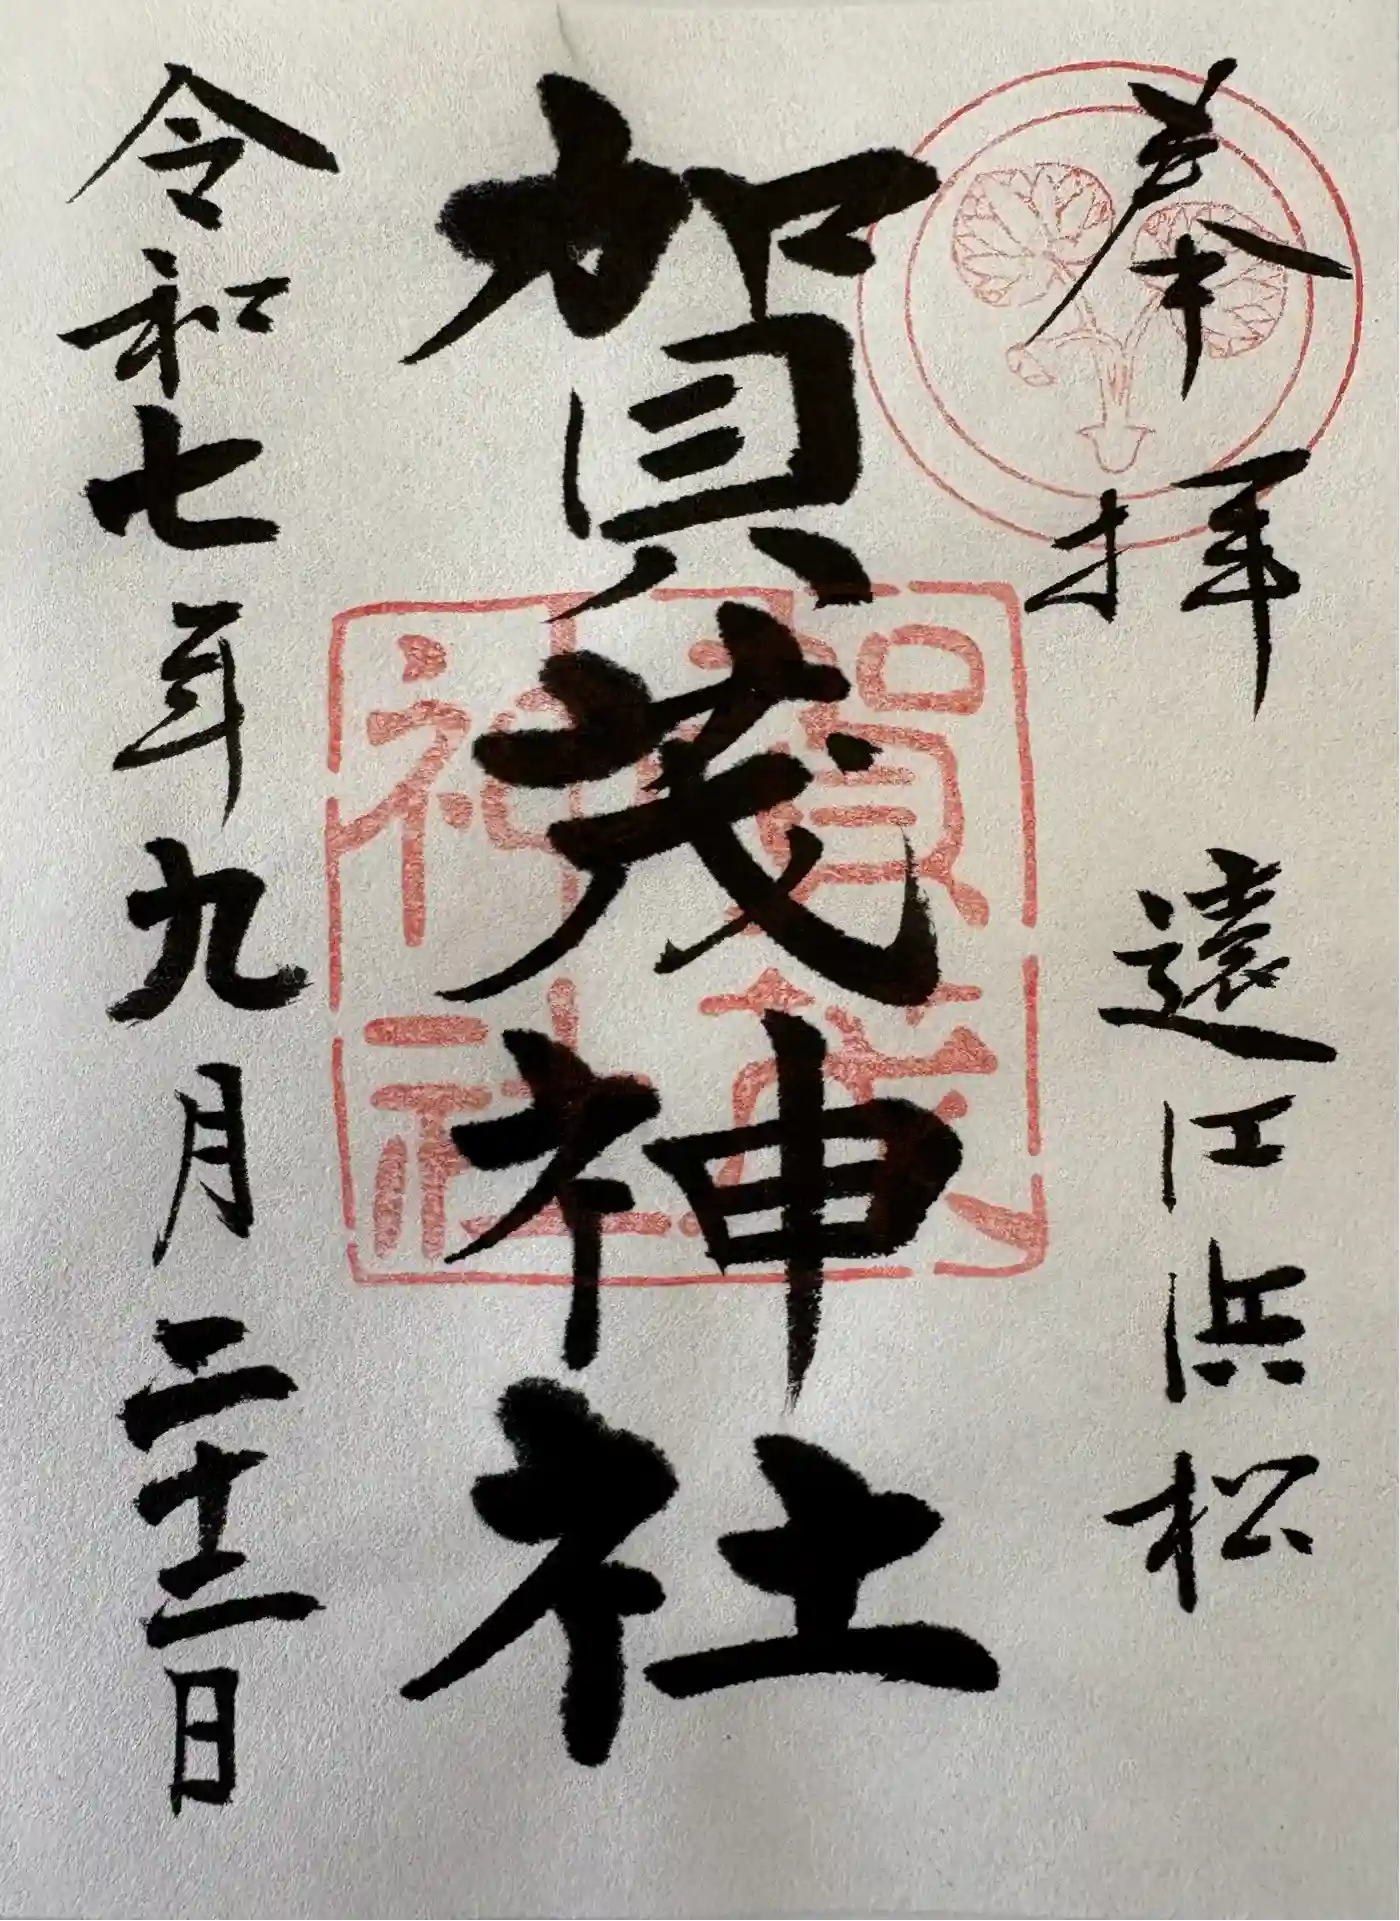 奉拝　遠江浜松
賀茂神社
令和七年九月二十二日
賀茂
神社